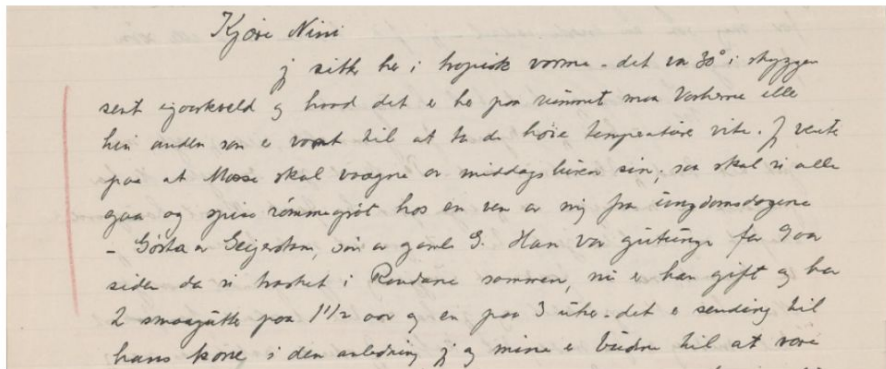 Kjære Nini
jeg sitter her i tropisk varme - det va 30° i skyggen
sent igaarkveld og hvad det er her paa rummet maa Vorherre eller
hin anden som er vant til at ta de høie temperaturer vite. Jeg venter
paa at Mosse skal vaagne av middagsluren sin, saa skal vi alle
gaa og spise rømmegrøt hos en ven av mig fra ungdomsdagene
- Gösta av Geijerstam, søn av gamle G. Han var gutunge for 9 aar
siden da vi trasket i Rondane sammen, nu er han gift og har
2 smaagutter paa 1 1/2 aar og en paa 3 uker - det er sending til
hans kone i den anledning jeg og mine er buden til at være